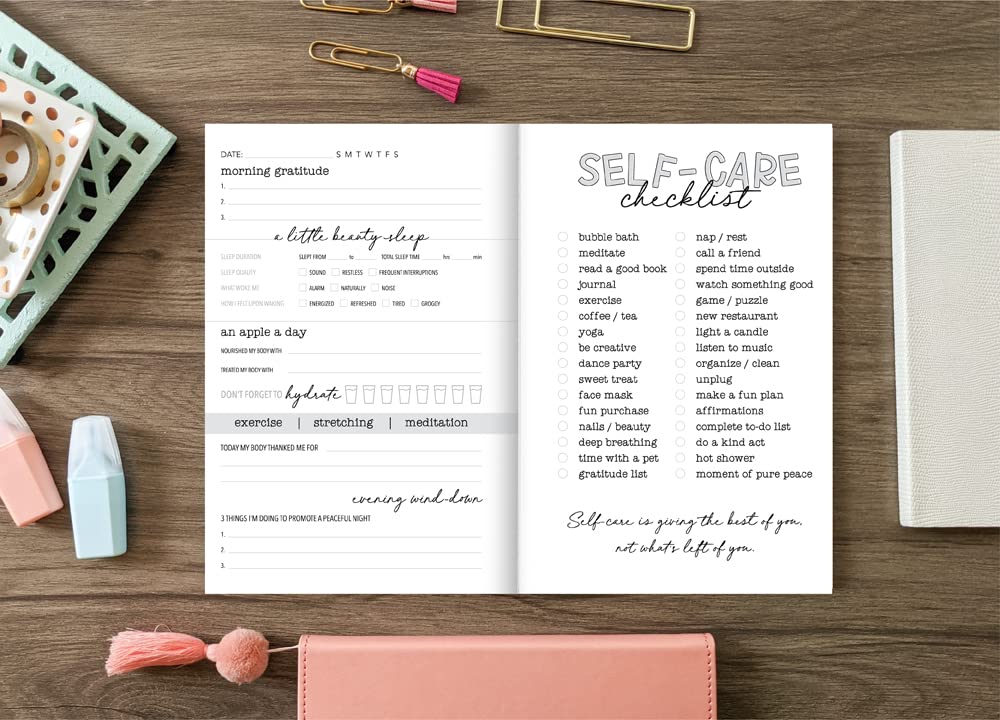 DATE: S M T W T F S
morning gratitude
1.
2.
3.
a little beauty sleep
SLEEP DURATION SLEPT FROM to TOTAL SLEEP TIME hrs min
SLEEP QUALITY SOUND RESTLESS FREQUENT INTERRUPTIONS
WHAT WOKE ME ALARM NATURALLY NOISE
HOW I FELT UPON WAKING ENERGIZED REFRESHED TIRED GROGGY
an apple a day
NOURISHED MY BODY WITH
TREATED MY BODY WITH
DON'T FORGET TO hydrate
exercise | stretching | meditation
TODAY MY BODY THANKED ME FOR
evening wind-down
3 THINGS I'M DOING TO PROMOTE A PEACEFUL NIGHT
1.
2.
3.
SELF-CARE
checklist
bubble bath
meditate
read a good book
journal
exercise
coffee / tea
yoga
be creative
dance party
sweet treat
face mask
fun purchase
nails / beauty
deep breathing
time with a pet
gratitude list
nap / rest
call a friend
spend time outside
watch something good
game / puzzle
new restaurant
light a candle
listen to music
organize / clean
unplug
make a fun plan
affirmations
complete to-do list
do a kind act
hot shower
moment of pure peace
Self-care is giving the best of you,
not what's left of you.